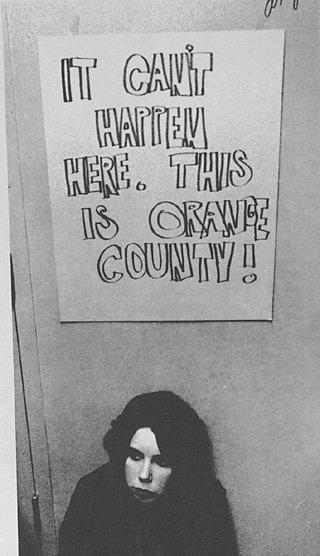 IT CAN'T
HAPPEN
HERE. THIS
IS ORANGE
COUNTY!